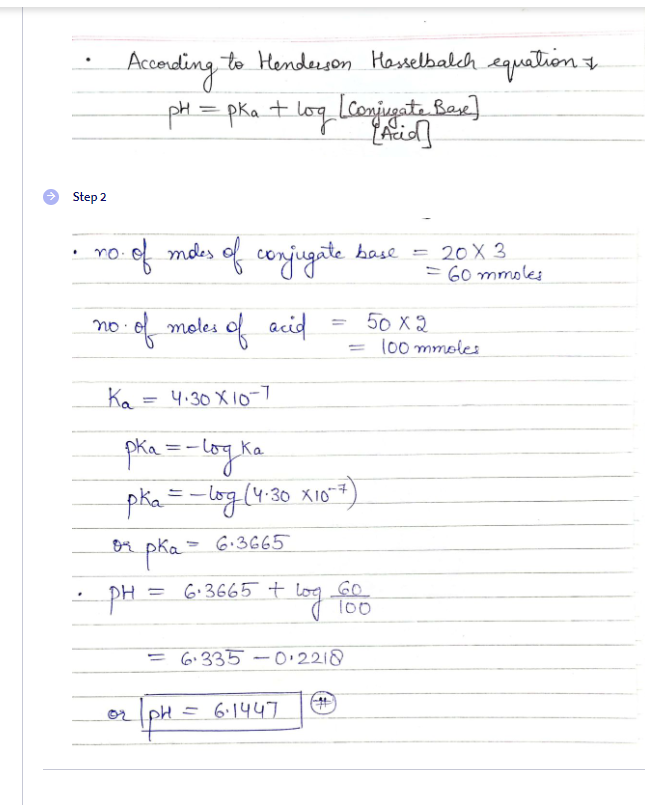 • According to Henderson Hasselbalch equation :
pH = pKa + log [Conjugate Base]
[Acid]
Step 2
• no. of moles of conjugate base = 20 X 3
= 60 mmoles
no. of moles of acid = 50 X 2
= 100 mmoles
Ka = 4.30 X 10⁻⁷
pKa = - log Ka
pKa = - log (4.30 X 10⁻⁷)
or pKa = 6.3665
• pH = 6.3665 + log 60
100
= 6.335 - 0.2218
or pH = 6.1447 #